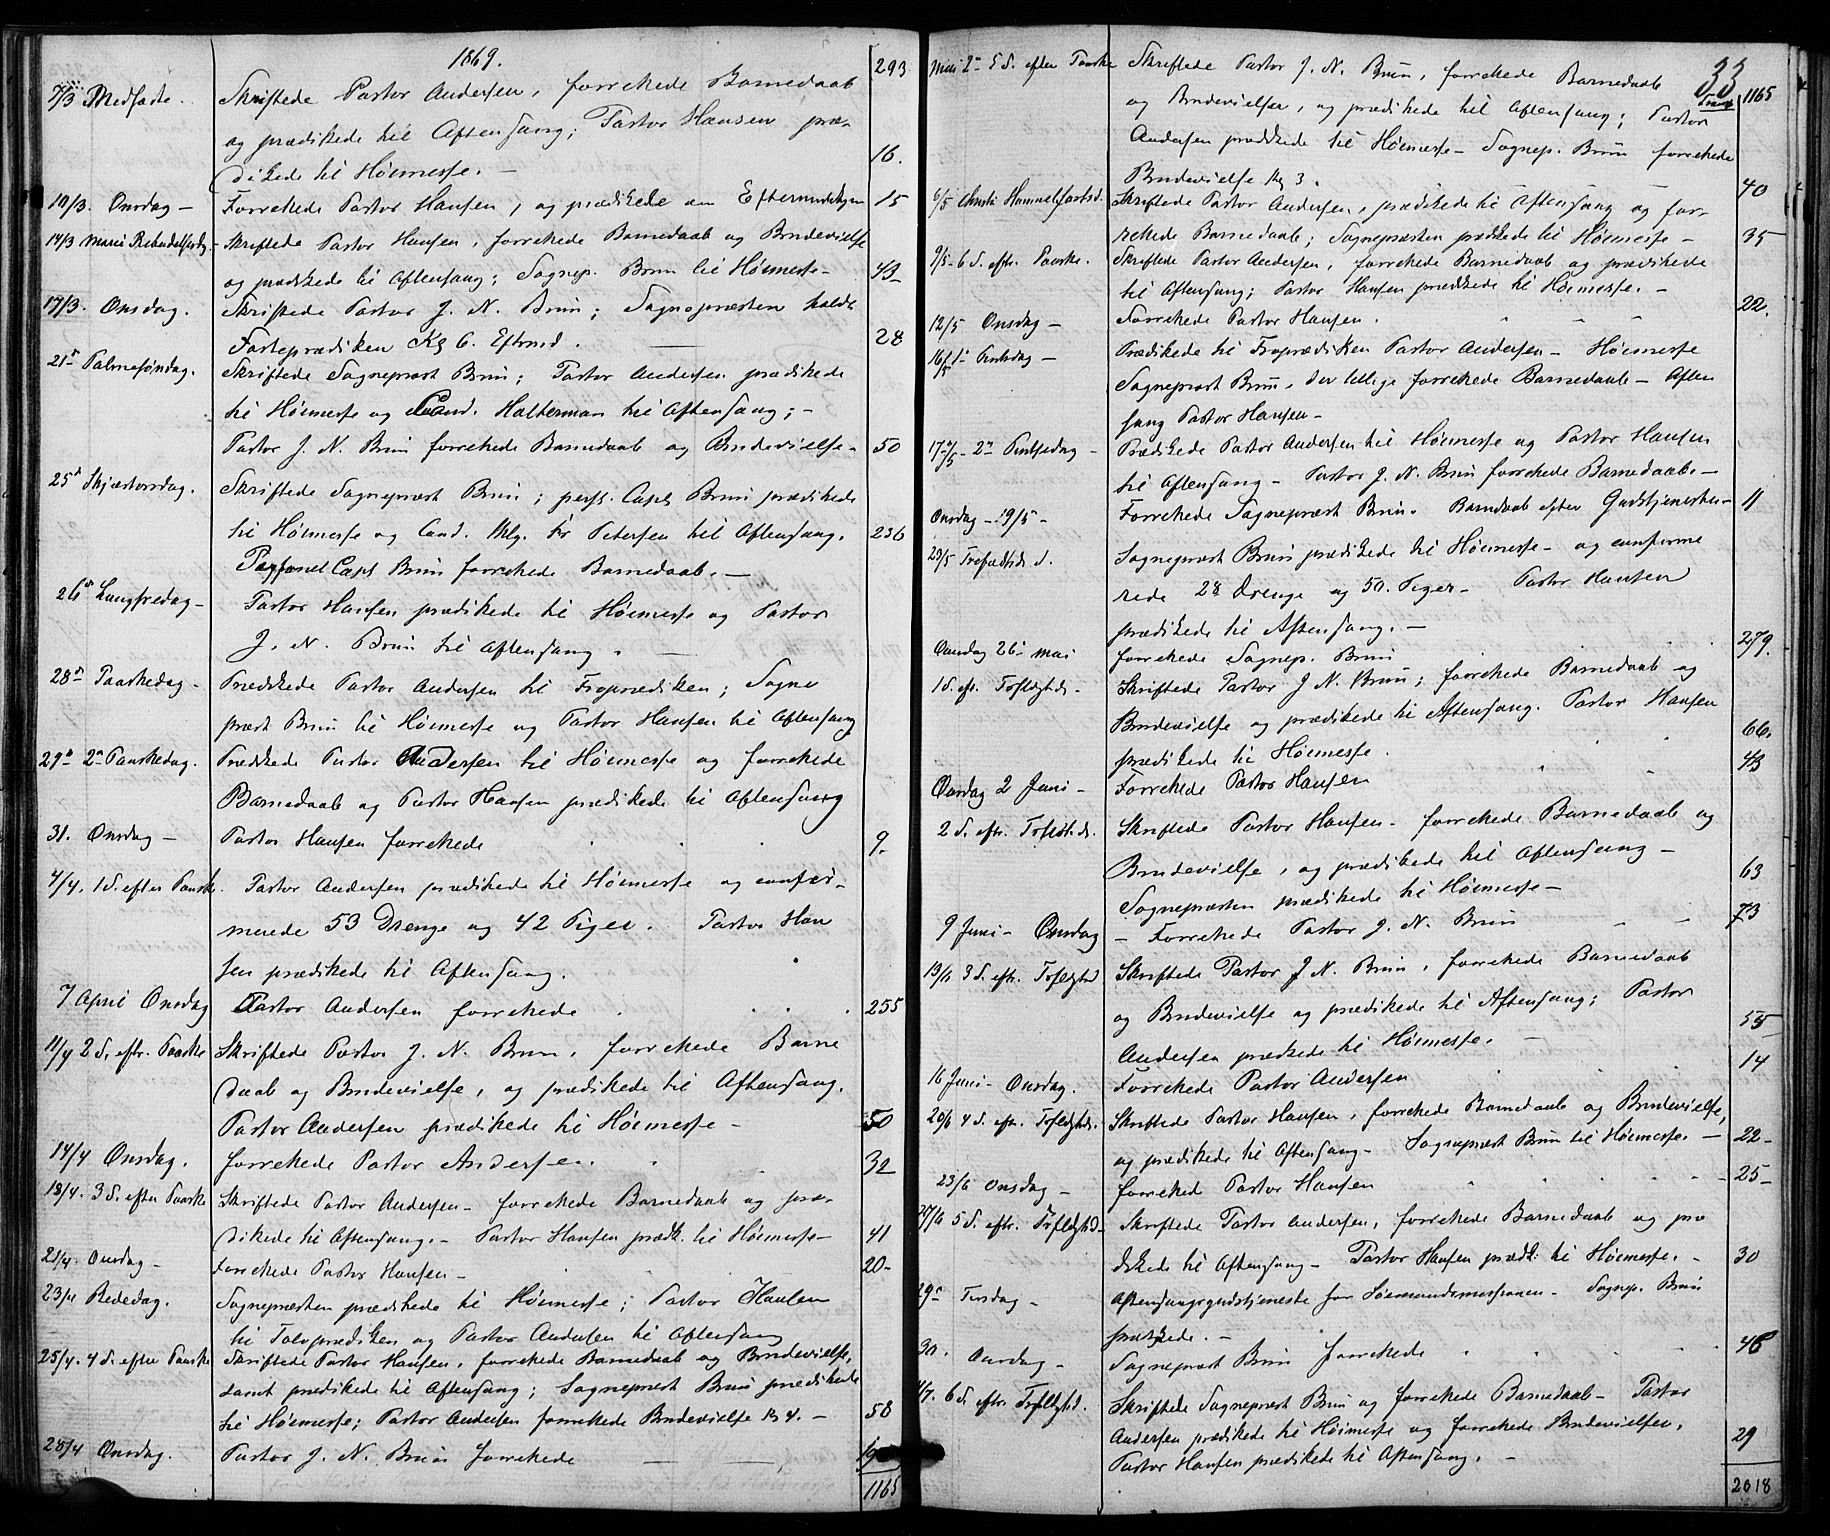 1869.
293
7/3 Medfaste. Skriftede Pastor Andersen, forrettede Barnedaab
og prædikede til Aftensang; Pastor Hansen præ-
dikede til Høimesse. – 16.
10/3. Onsdag – Forrettede Pastor Hansen, og prædikede em Eftermiddagen 15
14/3 Mariæ Bebudelsesdg. – Skriftede Pastor Hansen, forrettede Barnedaab og Brudevielse
og prædikede til Aftensang; Sognep. Brun til Høimesse – 43
17/3. Onsdag. Skriftede Pastor J. N. Brun; Sognepræsten holdt
Fasteprædiken Kl 6. Eftmd. — 28
21de Palmesøndag. Skriftede Sognepræst Brun; Pastor Andersen prædikede
til Høimesse og Cand. Halterman til Aftensang; –
Pastor J. N. Brun forrettede Barnedaab og Brudevielse – 50
25de Skjærtorsdag. Skriftede Sognepræst Brun; pers. Capl. Brun prædikede
til Høimesse og Cand. Petersen til Aftensang. 236
Personel Capl Brun forrettede Barnedaab. –
26de Langfredag – Pastor Hansen prædikede til Høimesse og Pastor
J. N. Brun til Aftensang. —
28de Paaskedag – Prædikede Pastor Andersen til Froprædiken; Sogne
præst Brun til Høimesse og Pastor Hansen til Aftensang
29de 2den Paaskedag. Prædikede Pastor Andersen til Høimesse og forrettede
Barnedaab og Pastor Hansen prædikede til Aftensang
31. Onsdag – Pastor Hansen forrettede . . . 9.
4/4. 1 S. efter Paaske. Pastor Andersen prædikede til Høimesse og confir-
merede 53 Drenge og 42 Piger. Pastor Han
sen prædikede til Aftensang.
7 April Onsdag Pastor Andersen forrettede . . . 255
11/4 2 S. eftr. Paaske Skriftede Pastor J. N. Brun, forrettede Barne
daab og Brudevielse, og prædikede til Aftensang.
Pastor Andersen prædikede til Høimesse – 50
14/4 Onsdag. forrettede Pastor Andersen. 32
18/4. 3 S. efter Paaske Skriftede Pastor Andersen – forrettede Barnedaab og præ-
dikede til Aftensang. – Pastor Hansen prædk. til Høimesse – 41
21/4. Onsdag – Forrettede Pastor Hansen – 20 –
23/4 Bededag. Sognepræsten prædikede til Høimesse; Pastor Hansen
til Tolvprædiken og Pastor Andersen til Aftensang
25/4. 4 S. efter Paaske Skriftede Pastor Hansen, forrettede Barnedaab og Brudevielse,
samt prædikede til Aftensang; Sognepræst Brun prædikede
til Høimesse; Pastor Andersen forrettede Brudevielse Kl 4. – 58
28/4 Onsdag. Pastor J. N. Brun forrettede — — 19
1165
33
Transp. 1165
Mai 2den 5 S. efter Paaske Skriftede Pastor J. N. Brun, forrettede Barnedaab
og Brudevielser, og prædikede til Aftensang; Pastor
Andersen prædikede til Høimesse – Sognep. Brun forrettede
Brudevielse Kl 3. 40
6/5 Christi Himmelfartsd. Skriftede Pastor Andersen, prædikede til Aftensang og for-
rettede Barnedaab; Sognepræsten prædikede til Høimesse – 35
9/5 – 6 S. eftr. Paaske. Skriftede Pastor Andersen, forrettede Barnedaab og prædikede
til Aftensang; Pastor Hansen prædikede til Høimesse. – 22.
12/5 Onsdag – Forrettede Pastor Hansen.
16/5 Pintsdag – Prædikede til Froprædiken Pastor Andersen – Høimesse
Sognepræst Brun, der tillige forrettede Barnedaab – Aften
sang Pastor Hansen –
17/5 – 2den Pintsedag – Prædikede Pastor Andersen til Høimesse og Pastor Hansen
til Aftensang – Pastor J. N. Brun forrettede Barnedaab. –
Onsdag – 19/5 – Forrettede Sognepræst Brun. Barnedaab efter Gudstjenesten – 11
23/5 Trefoldighds d. Sognepræst Brun prædikede til Høimesse – og confirme
rede 28 Drenge og 50. Piger – Pastor Hansen
prædikede til Aftensang. –
Onsdag 26 – mai forrettede Sognep. Brun 279.
1 S. eft. Trefldghds – Skriftede Pastor J N. Brun; forrettede Barnedaab og
Brudevielse og prædikede til Aftensang. Pastor Hansen
prædikede til Høimesse. 66.
Onsdag 2 Juni – Forrettede Pastor Hansen 43
2 S. eftr. Trefoldhds. Skriftede Pastor Hansen – forrettede Barnedaab og
Brudevielse, og prædikede til Aftensang –
Sognepræsten prædikede til Høimesse – 63
9 Juni – Onsdag – Forrettede Pastor J. N. Brun — 73
13/6 3 S. eftr. Trefldghd Skriftede Pastor J N. Brun, forrettede Barnedaab
og Brudevielse og prædikede til Aftensang; Pastor
Andersen prædikede til Høimesse. – 55
16 Juni – Onsdag. Forrettede Pastor Andersen 14
20/6 4 S. eftr. Trefldghds. Skriftede Pastor Hansen, forrettede Barnedaab og Brudevielse,
og prædikede til Aftensang – Sognepræst Brun til Høimesse. – 22 –
23/6 Onsdag – forretted Pastor Hansen 25 –
27/6 5 S. eftr. Trefldghd – Skriftede Pastor Andersen, forrettede Barnedaab og præ
dikede til Aftensang – Pastor Hansen prædk. til Høimesse. – 30
29de Tirsdag – Aftensangsgudstjeneste for Sømandsmissionen – Sognep. Brun
prædikede. –
30. Onsdag – Sognepræst Brun forrettede 46
4/7. 6 S. eftr. Trefldghd. Skriftede Sognepræst Brun og forrettede Barnedaab – Pastor
Andersen prædikede til Høimesse og forrettede Brudevielser.
Pastor Hansen prædikede til Aftensang. – 29
2018